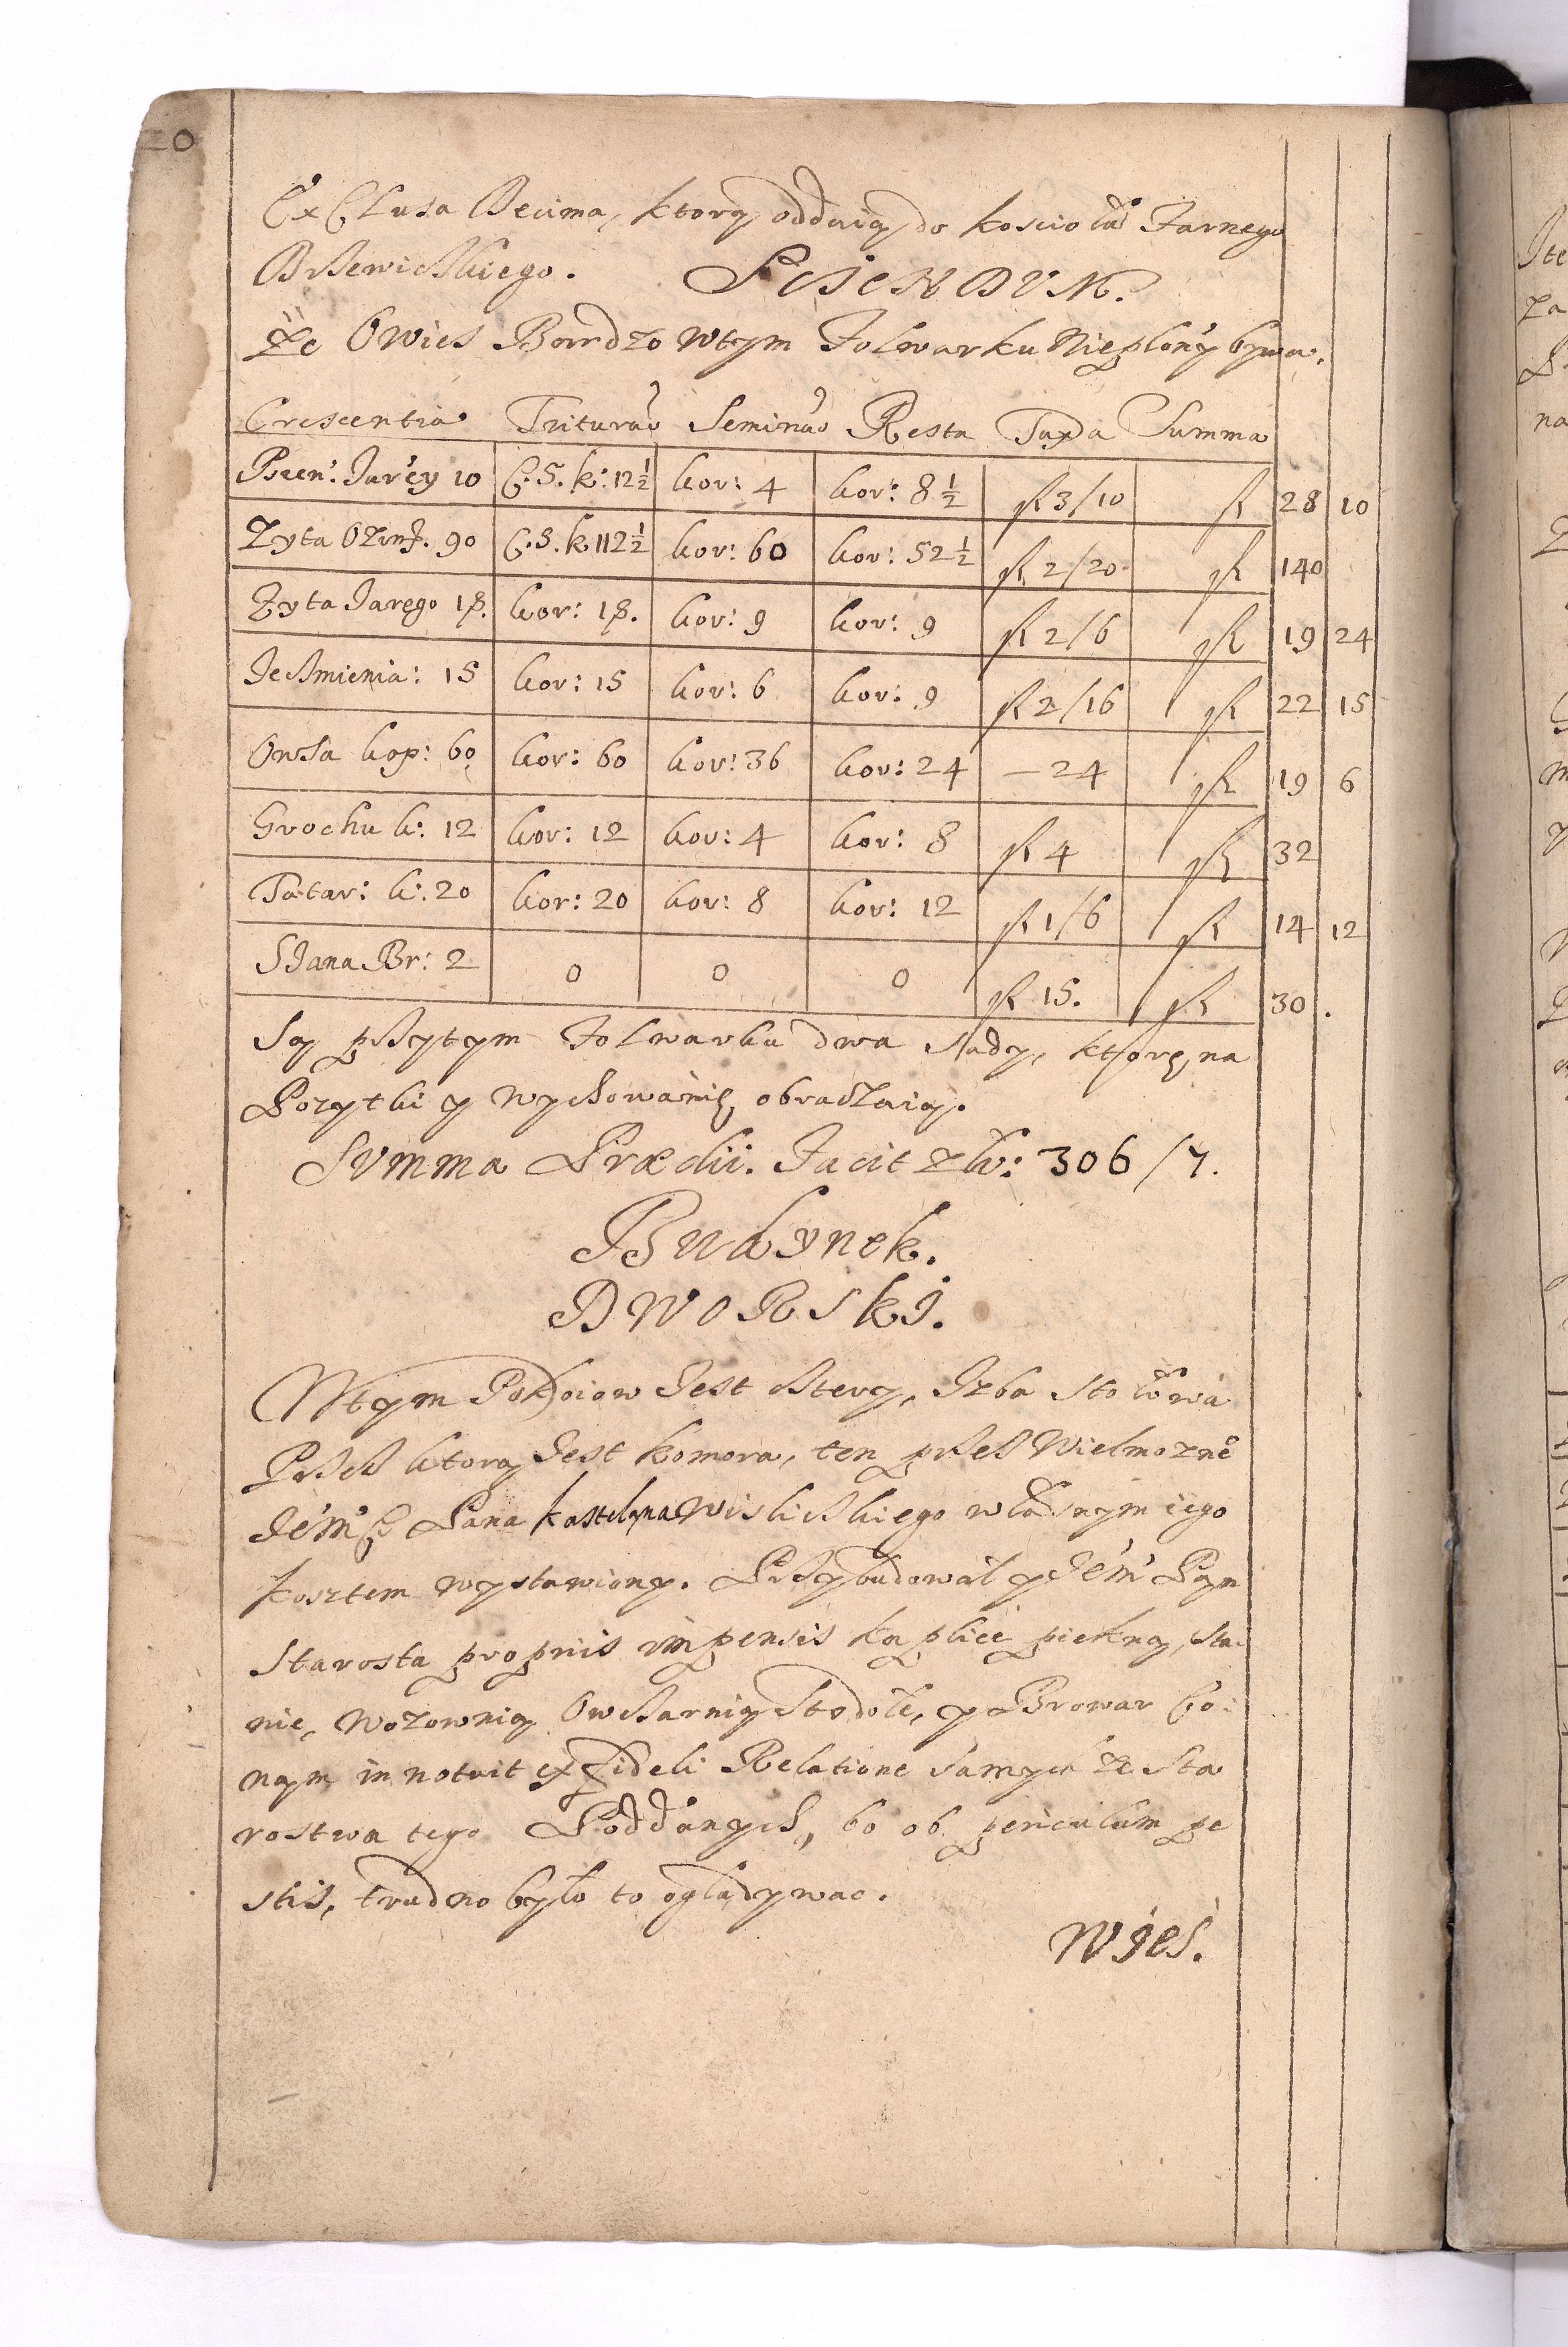 20
ExClusa Decima, ktorą oddaią do kosciołá Farnego
Drzewickiego. SCIENDVM.
Ze Owies Bardzo wtym Folwarku Niepłony bywa.
Crescentia Triturao Seminao Resta Taxa Summa
Pszen: Jarey 10 C. S. k: 12½ kor: 4 kor: 8½ fl 3/10 fl 28 10
Zyta Ozim. 90 C. S. k 112½ kor: 60 kor: 52½ fl 2/20 fl 140
Zyta Jarego 18. kor: 18. kor: 9 kor: 9 fl 2/6 fl 19 24
Jęczmienia: 15 kor: 15 kor: 6 kor: 9 fl 2/16 fl 22 15
Owsa kop: 60 kor: 60 kor: 36 kor: 24 – 24 fl 19 6
Grochu k: 12 kor: 12 kor: 4 kor: 8 fl 4 fl 32
Tatar: k: 20 kor: 20 kor: 8 kor: 12 fl 1/6 fl 14 12
Siana Br: 2 0 0 0 fl 15. fl 30 .
Są przytym Folwarku dwa sady, ktore na
Pozytki y wychowánie obradzaią.
Summa Prædii. Facit zł: 306/7.
Budynek.
DWORSKI.
Wtym Pokoiow Jest cztery, Izba Stołowa
Przez ktorą Jest komora, ten przez Wielmozne
Jem Pana kasztelana Wislickiego własnym iego
kosztem wystawiony. Przybudował y Jem Pan
Starosta propriis impensis kaplice piekną, sta-
nie, wozownią Owczarnią Stodołe, y Browar bo-
nam innotuit ex fideli Relatione samych ze Sta
rostwa tego Poddanych, bo ob periculum pe
stis, trudno było to ogladywac.
Wieś.